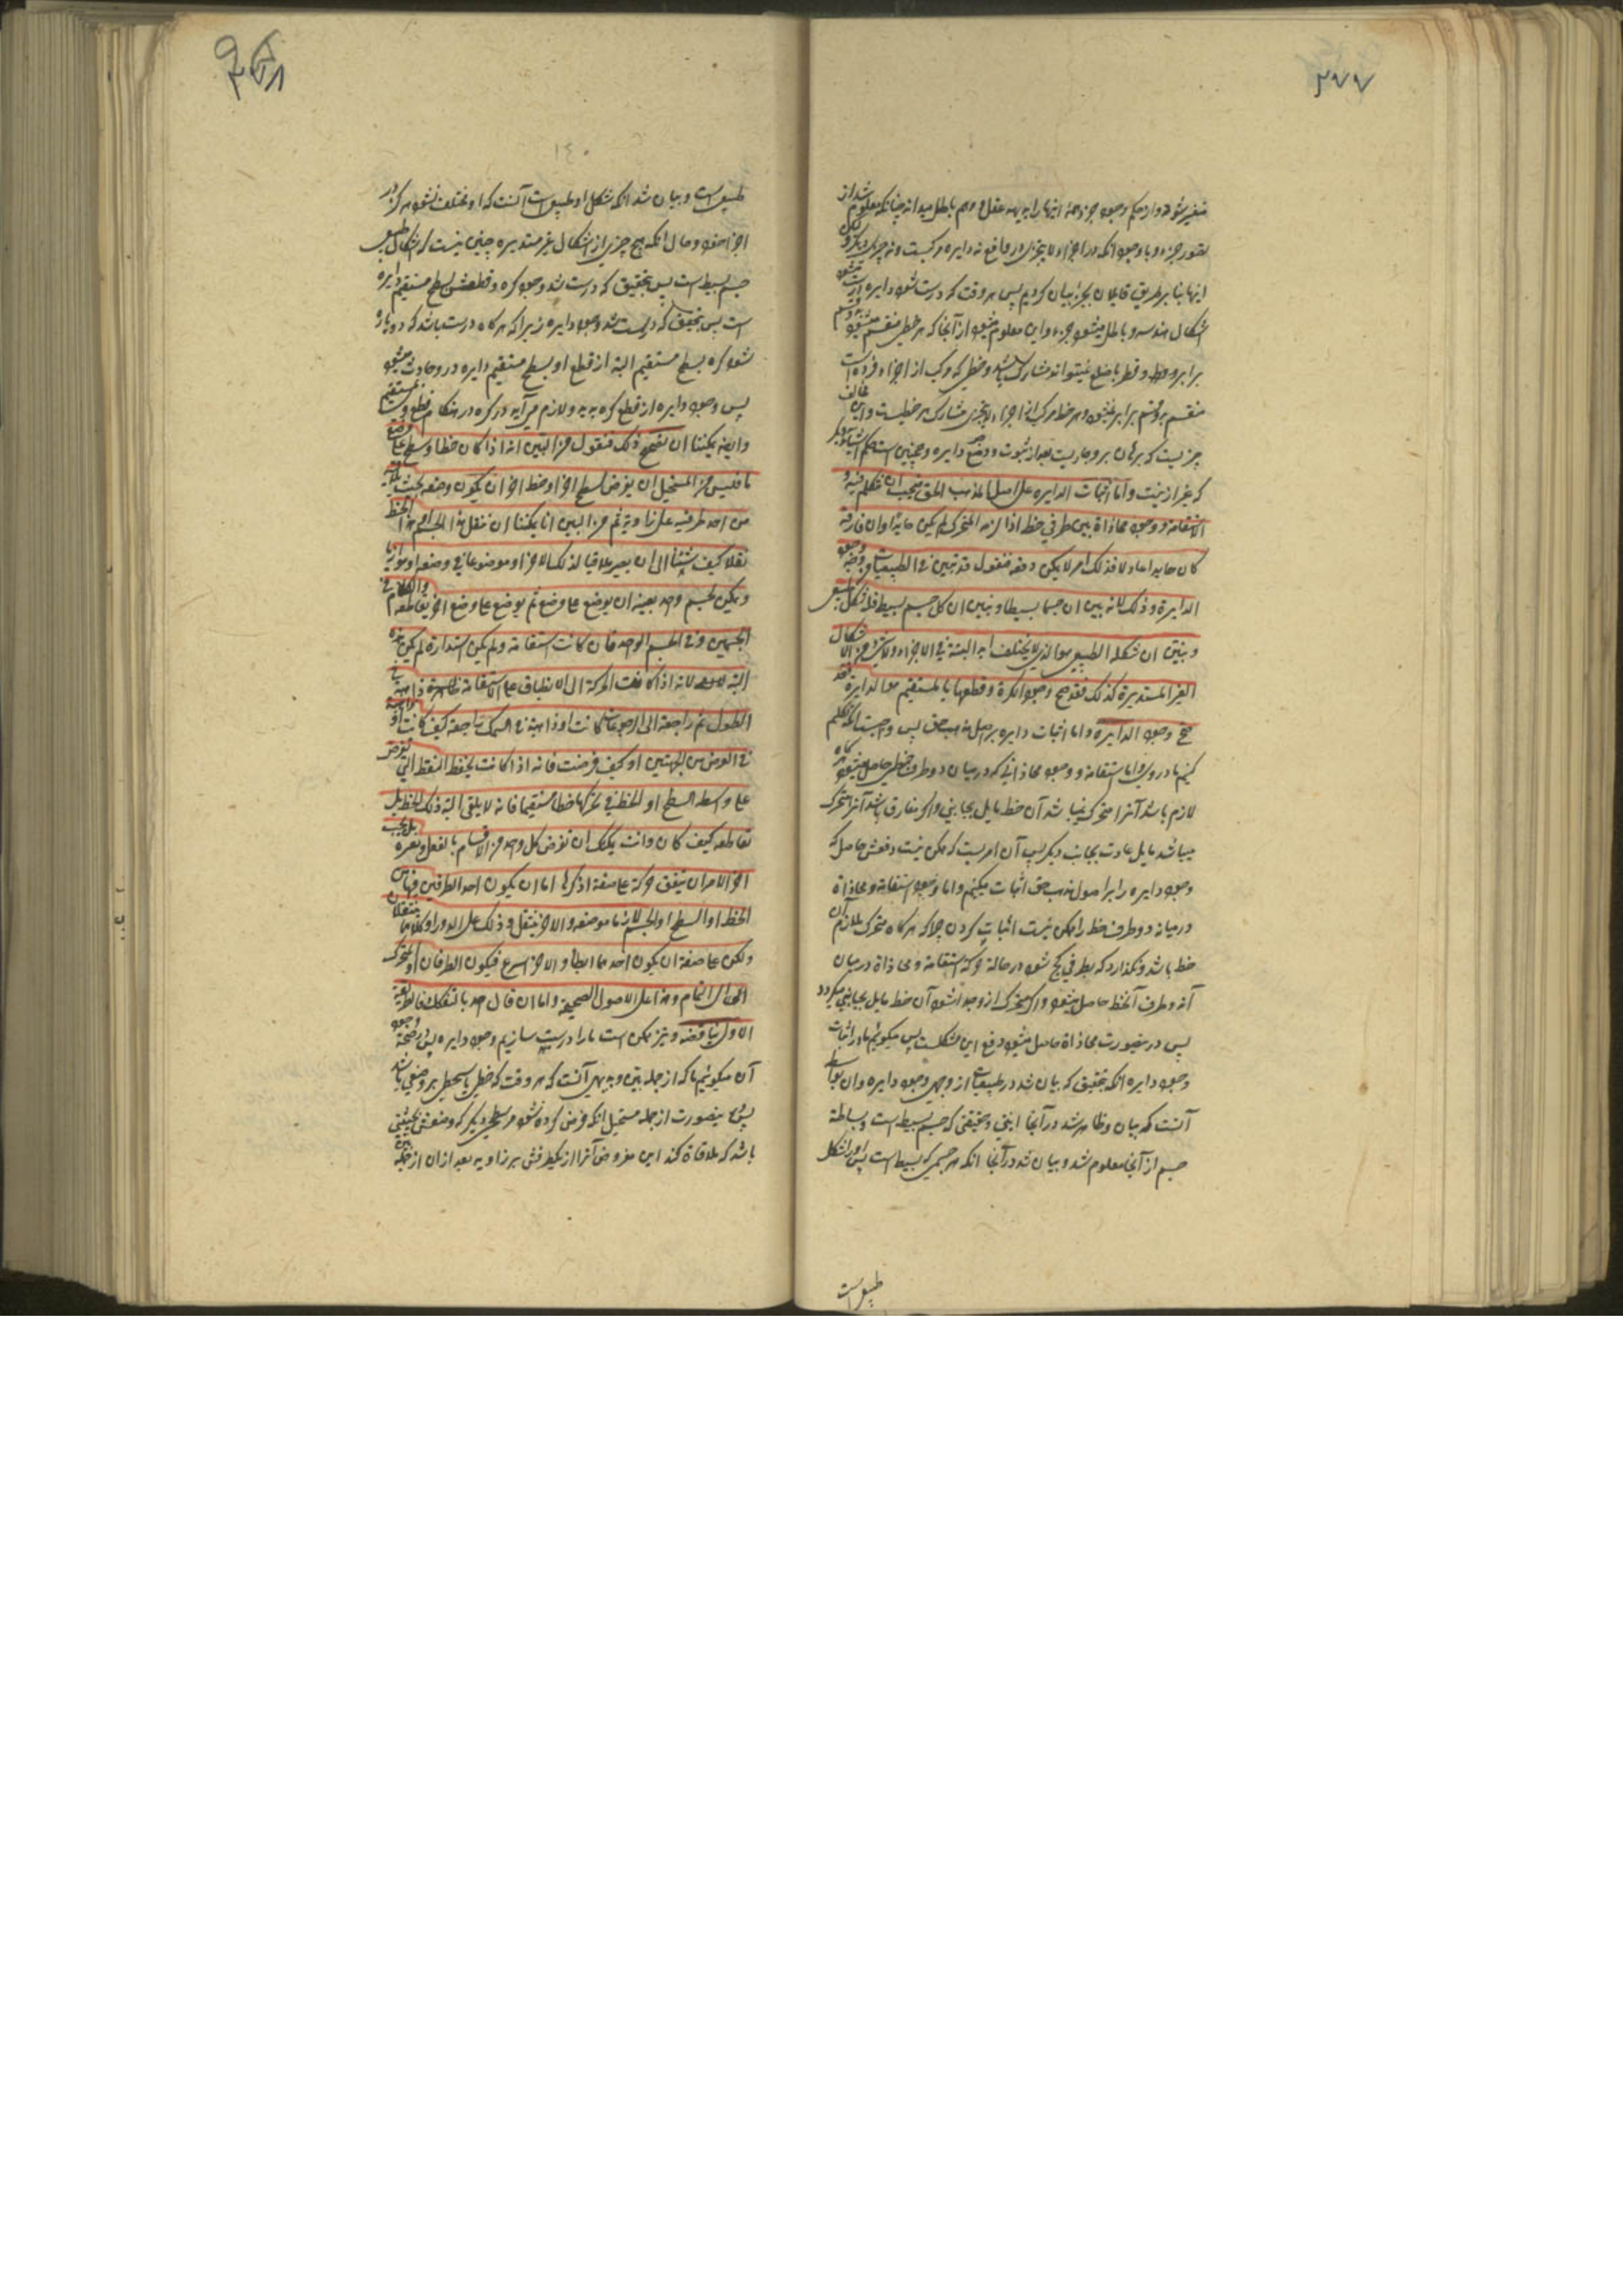 ۲۷۷
متغیر شود دارد حکم وجود جزو همهٔ اینها را بدیهه عقل و وهم باطل میداند چنانکه معلوم شد از
تصور جزء و با وجود آنکه در اجزاء لا یتجزی در واقع نه دایره مرکبست و نه چیز دیگر و لکن
اینها بنا بر طریق قایلان بجزء بیان کردیم پس هر وقت که درست شود دایره درست میشود
اشکال هندسه و باطل میشود جزء و این معلوم میشود از آنجا که هر خطی منقسم میشود بدو قسم
برابر و قطر با ضلع نمیتواند مشارک باشد و خطی که مرکب از اجزاء فرد است
منقسم بدو قسم برابر نمیشود و هر خط مرکب از اجزاء لا یتجزی مشارک هر خطیست و این خالف
چیزیست که برهان بر و جاریست بعد از ثبوت و وضع دایره و همچنین است حکم اشیاء دیگر
که غیر ازینست و اما اثبات الدایره علی اصل المذهب الحق فیجب ان نتکلم فیه و
الاستقامة و وجود محاذاة بین طرفی خط اذا لزمه المتحرک لم یکن حایدا و ان فارقه
کان حایدا عادلا فذلک امر لا یمکن دفعه فنقول قد تبین فی الطبیعیات وجود
الدایرة و ذلک لانه بین ان جسما بسیطا و تبین ان کل جسم بسیط فله شکل طبیعی
و تبین ان شکله الطبیعی هو الذی لا یختلف البتة فی الاجزاء و لا شیء من الاشکال
الغیر المستدیرة کذلک فقد صح وجود الکرة و قطعها بالمستقیم هو الدایرة فقد
صح وجود الدایرة و اما اثبات دایره بر اصل مذهب حق پس واجبست آنکه تکلم
کنیم ما در وی و اما استقامة و وجود محاذاتی که در میان دو طرف خطی حاصل میشود هرگاه
لازم باشد آنرا متحرک نمیباشد آن خط مایل بجانبی و اگر مفارق باشد آنرا متحرک
میباشد مایل عادت بجانب دیگر پس آن امریست که ممکن نیست دفعش حاصل که
وجود دایره را بر اصول مذهب حق اثبات میکنیم و اما وجود استقامة و محاذاة
در میانه دو طرف خط را ممکن نیست اثبات کردن چرا که هرگاه متحرک ملازم آن
خط باشد و نگذارد که بطرفی کج شود در حالة حرکة استقامة و محاذاة در میان
آن دو طرف آنخط حاصل میشود و اگر متحرک ازو جدا شود آن خط مایل بجانبی میگردد
پس درینصورت محاذاة حاصل میشود دفع این مشکلست پس میگوئیم ما در اثبات
وجود دایره آنکه بتحقیق که بیان شد در طبیعیات از وجهی وجود دایره و آن بواسطهٔ
آنست که بیان و ظاهر شد در آنجا اینی و حقیقتی که جسم بسیط است و بساطة
جسم از آنجا معلوم شد و بیان شد در آنجا آنکه هر جسمی که بسیط است پس او را شکل
طبیعی است
۲۷۸
۱۴۰
طبیعی است و بیان شد آنکه شکل او طبیعی است آنست که او مختلف نشود هرگز در
اجزا خود و حال آنکه هیچ چیزی از اشکال غیر مستدیره چنین نیست که اشکال طبیعی
جسم بسیط است پس بتحقیق که درست شد وجود کره و قطعش بسطح مستقیم دایره
است پس بتحقیق که درست شد وجود دایره زیرا که هرگاه درست باشد که دو پاره
شود کره بسطح مستقیم البته از قطع او بسطح مستقیم دایره در و حادث میشود
پس وجود دایره از قطع کره بدید و لازم می آید در کره در هنگام قطع بمستقیم
و ایضا یمکننا ان نصحح ذلک فنقول من البین انه اذا کان خط او سطح علی وضع
ما فلیس من المستحیل ان یفرض لسطح آخر او خط آخر ان یکون وضعه بحیث یلاقیه
من احد طرفیه علی زاویة ثم من البین انا یمکننا ان ننقل هذا الجسم او هذا الخط
نقلا کیف شئنا الی ان یصیر ملاقیا لذلک الاخر او موضوعا فی وضعه او موازیا
و یمکن لجسم واحد بعینه ان یوضع علی وضع ثم یوضع علی وضع آخر یقاطعه و الکلام فی
الجسمین و فی الجسم الواحد فان کانت استقامة و لم یکن استدارة لم یکن هذا
البتة لانه اذا کانت الحرکة الی الانطباق علی الاستقامة ذاهبة فی
الطول ثم راجعة الی العرض کانت او ذاهبة فی السمک راجعة کیف کانت او
فی العرض من الجهتین او کیف فرضت فانه اذا کانت یحفظ النقط التی تفرض
علی واسطه السطح او الخط فی تحرکها خطا مستقیما فانه لا یلقی البتة ذلک الخط بل
تقاطعه کیف کان و انت یمکنک ان تفرض کل واحد من الاقسام بالفعل و تعتبره بل یجب
آخر الامر ان یتفق حرکة علی صفة اذکرها اما ان یکون احد الطرفین من
الخط او السطح او الجسم لازما موضعه و الاخر ینتقل و ذلک علی الدور او کلاهما ینتقلان
و لکن علی صفة ان یکون احدهما ابطأ و الاخر اسرع فیکون الطرفان او المتحرک
الی التمام و هذا علی الاصول الصحیحة و اما ان قال احد بالتفکک فالوجه
الاول یناقضه و نیز ممکن است ما را درست سازیم وجود دایره پس در صحة وجود
آن میگوئیم ما که از جمله بینه و بدیهی آنست که هر وقت که خطی یا سطحی بر وضعی باشد
پس درینصورت از جمله مستحیل آنکه فرض کرده شود مر سطحی دیگر که وضعش بحیثیتی
باشد که ملاقاة کند این مفروض آنرا از یکطرفش بر زاویه بعد از آن از جمله بین